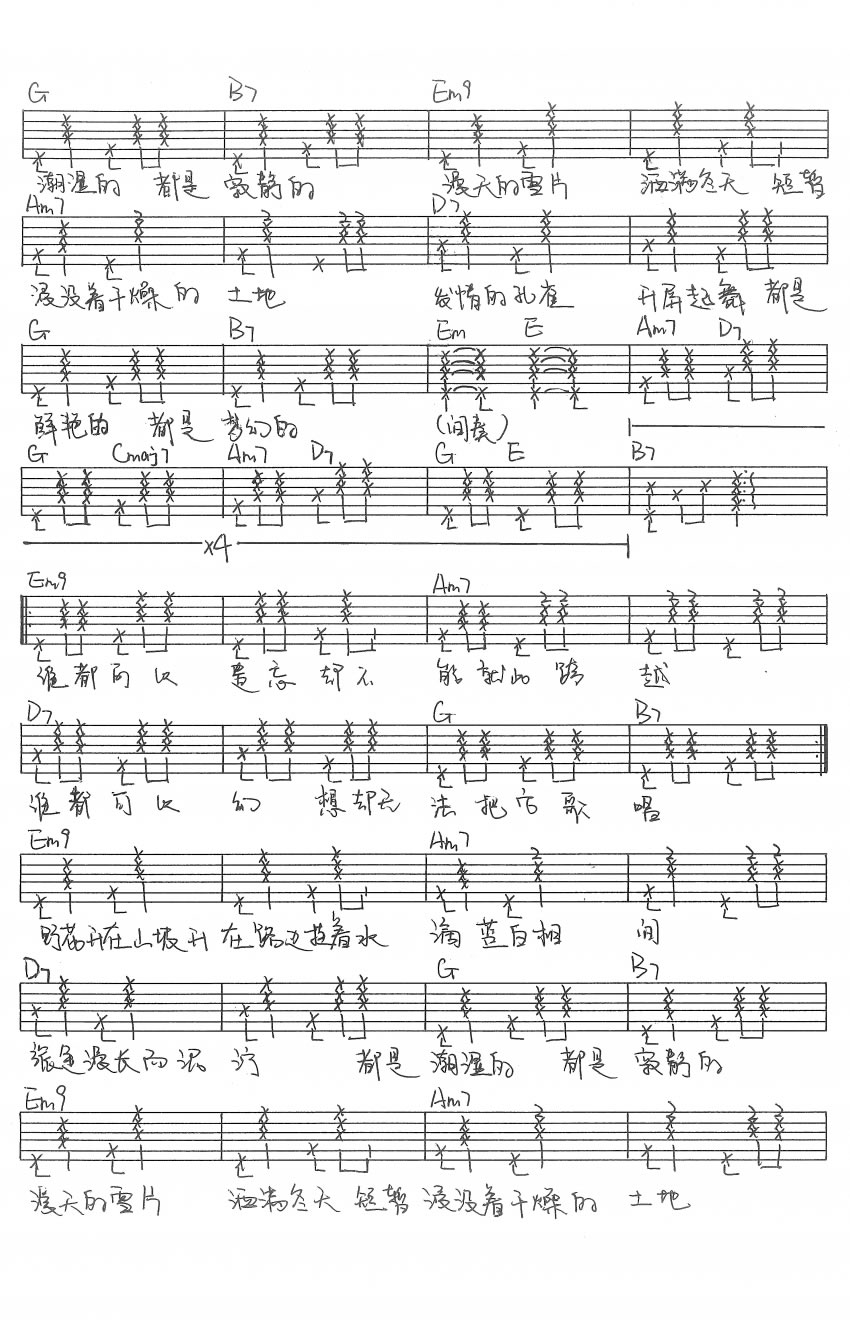 G B7 Em9
潮湿的 都是 寂静的 漫天的雪片 洒满冬天 短暂
Am7 D7
浸没着干燥的 土地 发情的孔雀 开屏起舞 都是
G B7 Em E Am7 D7
鲜艳的 都是 梦幻的 (间奏)
G Cmaj7 Am7 D7 G E B7
x4
Em9 Am7
谁都可以 遗忘却不 能就此跨 越
D7 G B7
谁都可以 幻 想却无 法把它歌 唱
Em9 Am7
野花开在山坡开 在路边挂着水 滴蓝白相 间
D7 G B7
漫长而泥泞 都是 潮湿的 都是 寂静的
Em9 Am7
漫天的雪片 洒满冬天 短暂 浸没着干燥的 土地